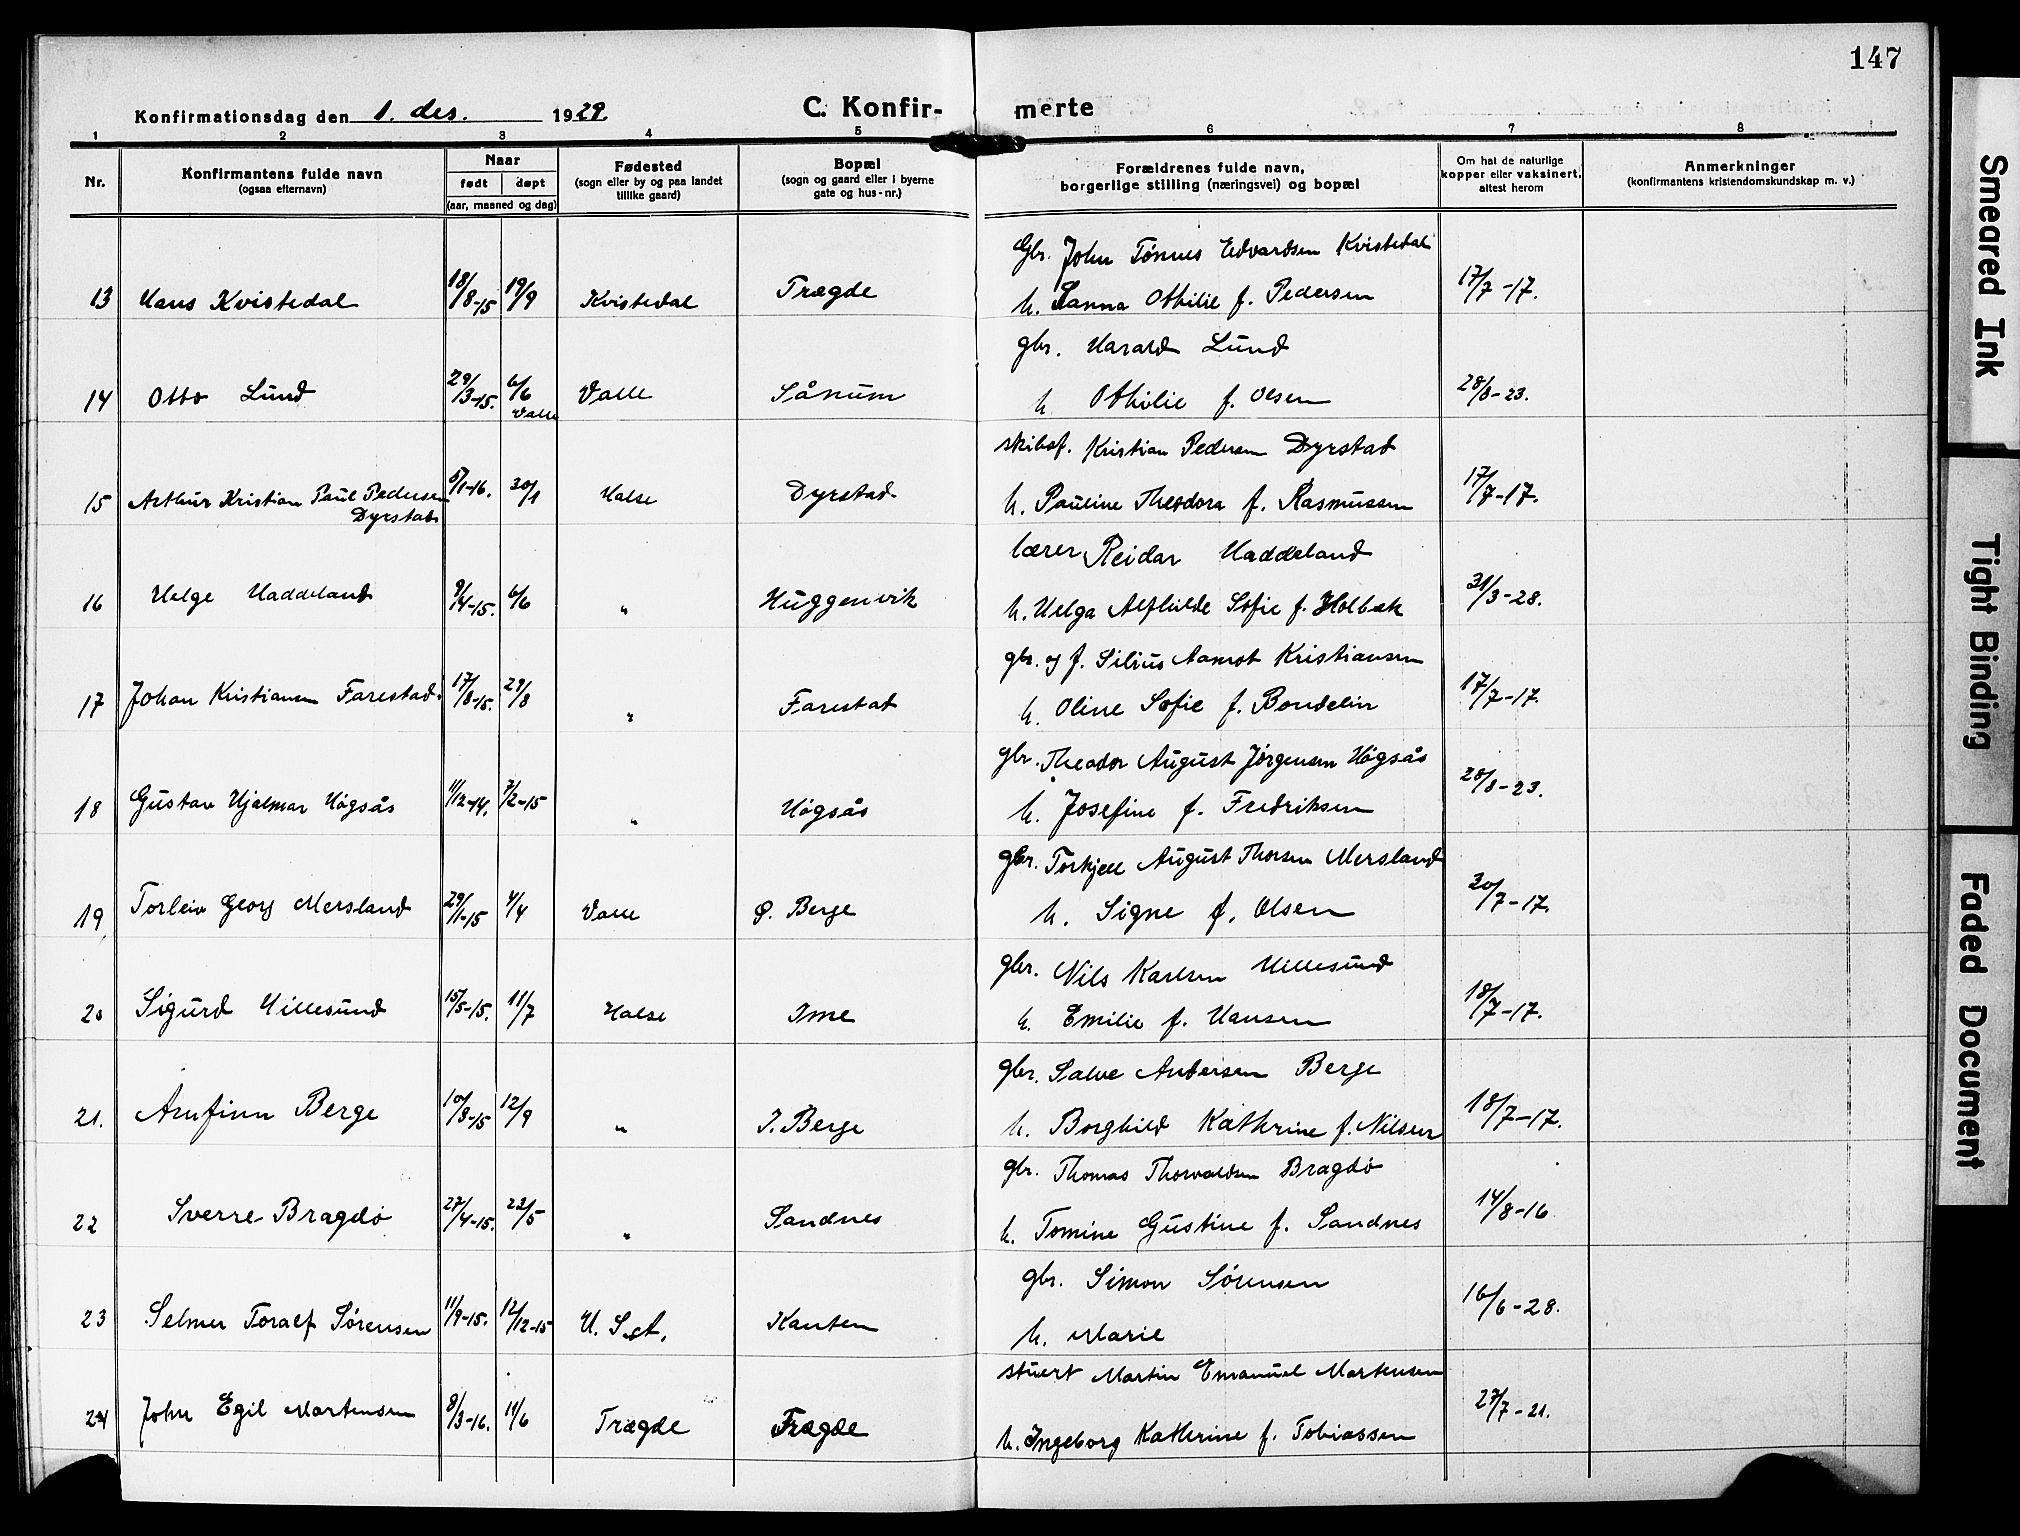 147
Konfirmationsdag den 1. des. 1929.
C. Konfir-merte
1 2 3 4 5 6 7 8
Nr.
Konfirmantens fulde navn
(ogsaa efternavn)
Naar
født døpt
(aar, maaned og dag)
Fødested
(sogn eller by og paa landet
tillike gaard)
Bopæl
(sogn og gaard eller i byerne
gate og hus-nr.)
Forældrenes fulde navn,
borgerlige stilling (næringsvei) og bopæl
Om hat de naturlige
kopper eller vaksinert,
attest herom
Anmerkninger
(konfirmantens kristendomskundskap m. v.)
Gbr. John Tønnes Edvardsen Kvistedal
13 Hans Kvistedal 18/8-15 19/9 Kvistedal Trægde h. Sanna Othilie f. Pedersen 17/7-17.
gbr. Harald Lund
14 Otto Lund 29/3-15. 6/6 Valle Valle Sånum h. Othilie f. Olsen 28/8-23.
skibsf. Kristian Pedersen Dyrstad
15 Arthur Kristian Paul Pedersen 5/1-16. 30/1 Halse Dyrstad h. Pauline Theodora f. Rasmussen 17/7-17.
Dyrstad
lærer Reidar Haddeland
16 Helge Haddeland 9/4-15. 6/6 " Huggenvik h. Helga Alfhilde Sofie f. Holbæk 31/3-28.
gbr. og f. Silius Aamot Kristiansen
17 Johan Kristiansen Farestad. 17/8-15. 29/8 " Farestad h. Oline Sofie f. Bondelin 17/7-17.
gbr. Theodor August Jørgensen Høgsås
18 Gustav Hjalmar Høgsås 11/12-14. 7/2-15 " Høgsås h. Josefine f. Fredriksen 28/8-23.
gbr. Torkjell August Thorsen Mersland
19 Torleiv Georg Mersland 29/1-15 4/4 Valle Ø. Berge h. Signe f. Olsen 30/7-17.
gbr. Nils Karlsen Hillesund
20 Sigurd Hillesund 15/5-15. 11/7 Halse Ime h. Emilie f. Hansen 18/7-17.
gbr. Salve Andersen Berge
21. Arnfinn Berge 10/8-15 12/9 " I. Berge h. Borghild Kathrine f. Nilsen 18/7-17.
gbr. Thomas Thorvaldsen Bragdø
22 Sverre Bragdø 27/4-15. 23/5 " Sandnes h. Tomine Gustine f. Sandnes 14/8-16
gbr. Simon Sørensen
23 Selmer Toralf Sørensen 11/9-15. 12/12-15 H. S. Kanten h. Marie 16/6-28.
stuert Martin Emanuel Mortensen
24 John Egil Mortensen 8/3-16. 11/6 Trægde Trægde h. Ingeborg Kathrine f. Tobiassen 27/7-21.
Smeared Ink
Tight Binding
Faded Document